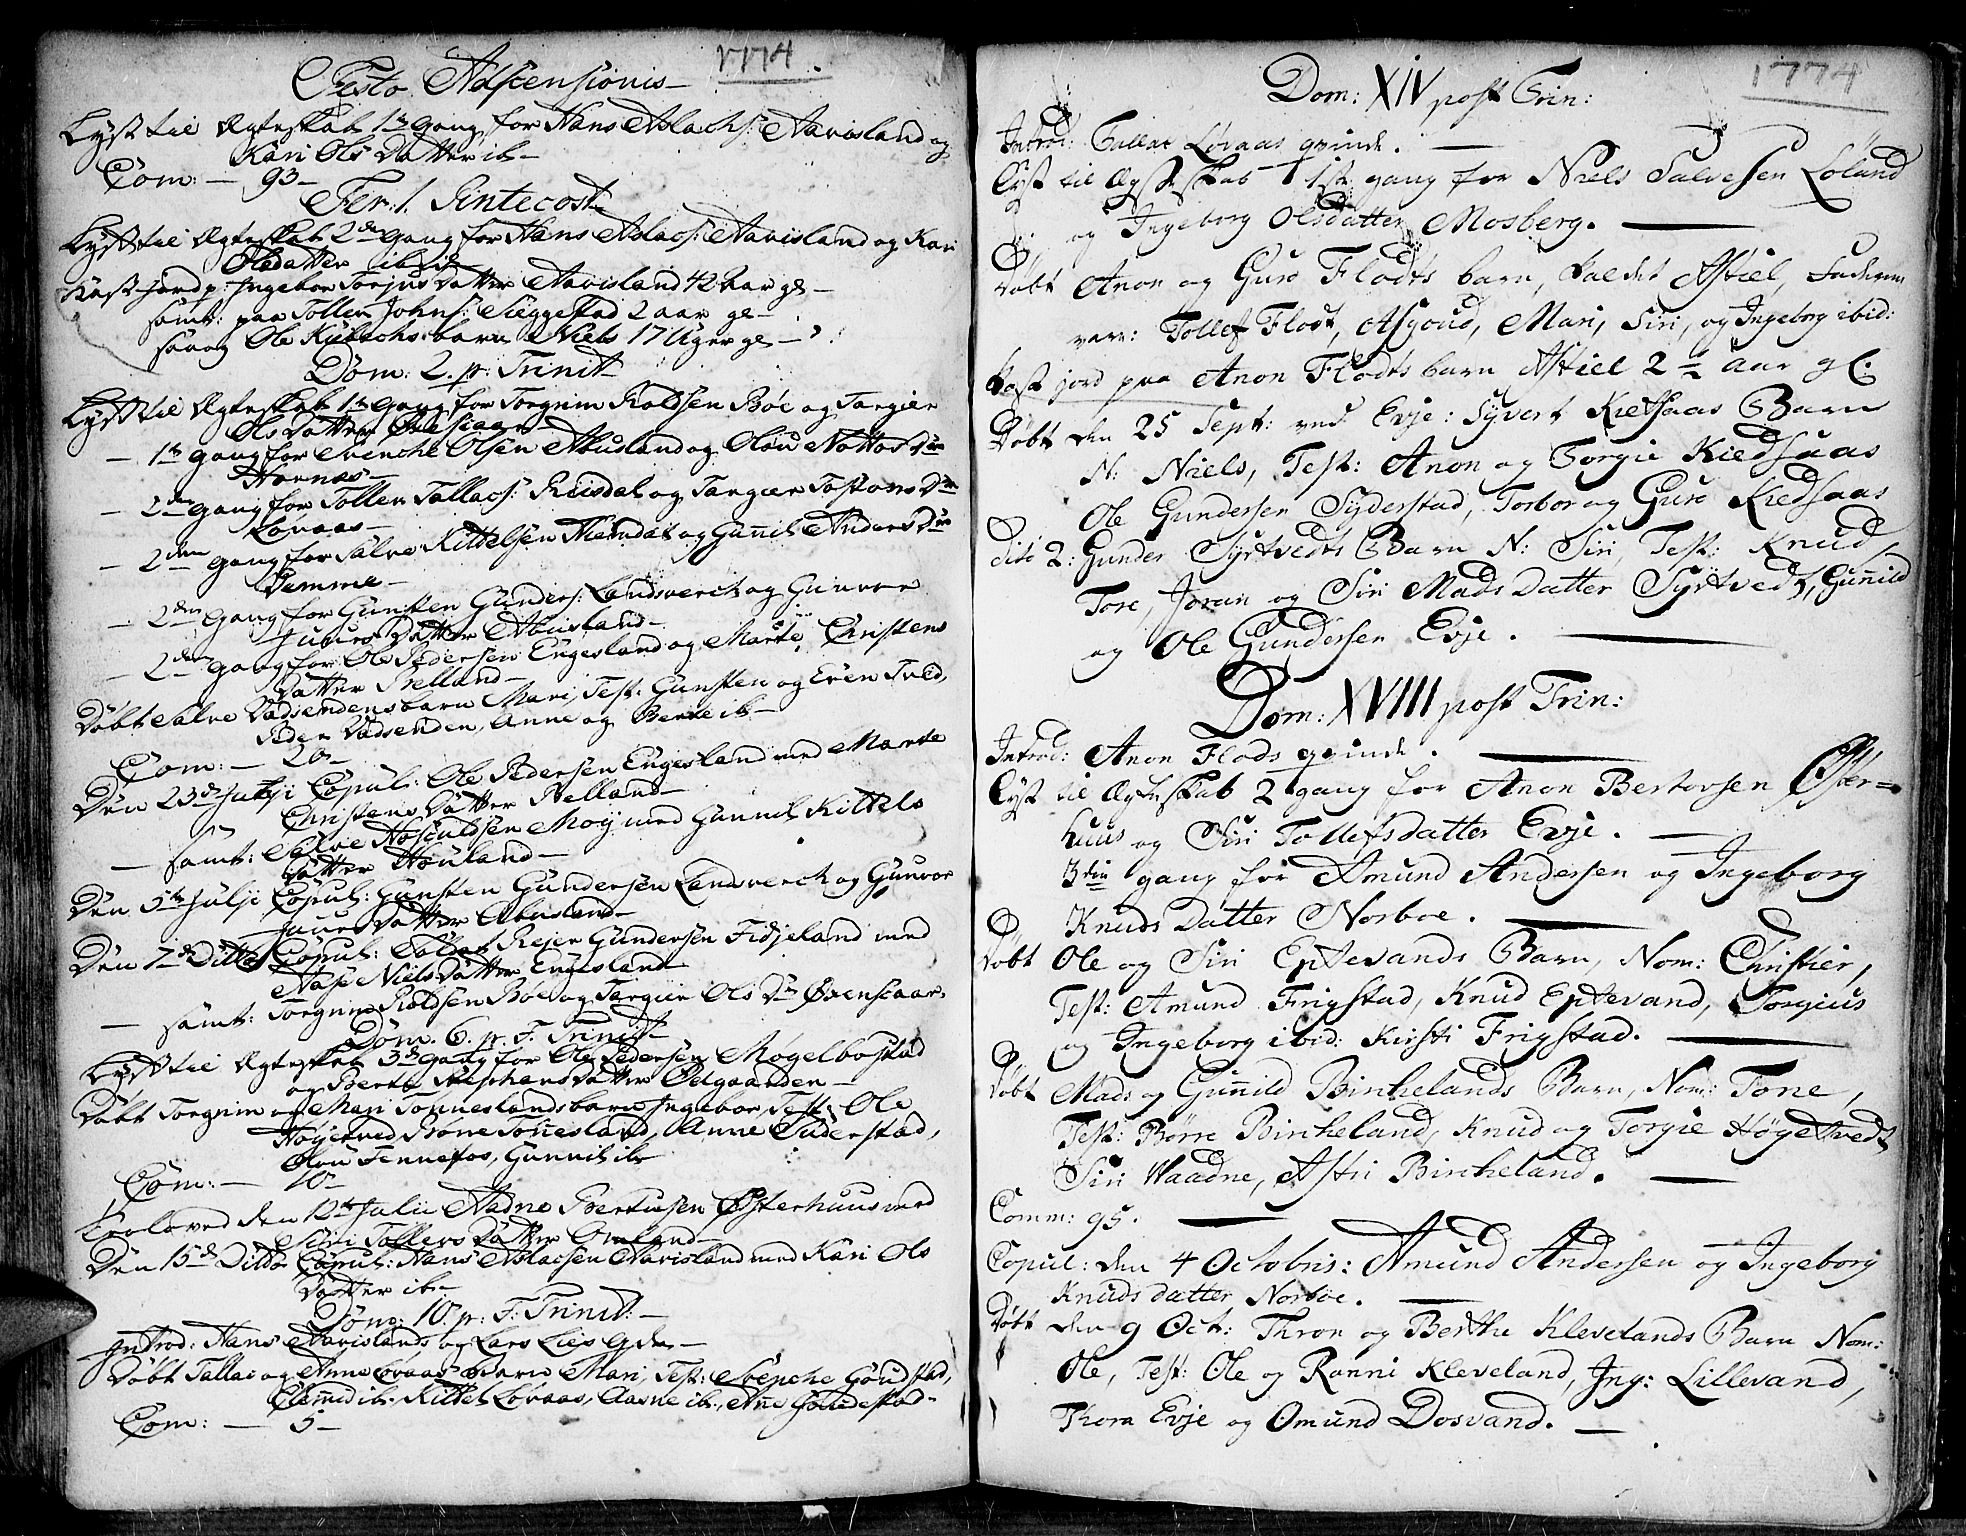 1774
Festo Adscensionis
Lyst til Ægteskab 1te gang for Hans Aslachs: Aavisland og
Kari Ols Datter ib.
Com: — 93 —
Fer: 1. Pintecost
Lyst til Ægteskab 2den gang for Hans Aslacs: Aavisland og Kari
Olsdatter ibid
Kast jord p: Ingebor Torjus Datter Aavisland 42 aar gl —
samt: paa Tollef Johns: Sieggestad 2 aar gl —
saa og Ole Kubachs barn Niels 17 Uger gl —
Dom: 2. p: Trinit
Lyst til Ægteskab 1te gang for Torgrim Roldsen Böe og Targier
Ols Datter
— 1te gang for Svenche Olsen Abusland og Olou
Hornæs —
— 2den gang for Tollef Tallacs: Reisdal og Targier Tostens Dtr
Lovaas —
— 2den gang for Salve Kittelsen og Gunnil Anders Dtr
Vemme —
— 2den gang for Gunsten Gunders: Landsverck og Gunvor
Datter Abusland —
— 2den gang for Ole Pedersen Engesland og Marte Christens
Datter Helland —
Döbt Salve Vadsendens barn Mari, Test: Gunsten og Even Tved,
Peder Vadsenden, Anne og Berte ib —
Com: — 20 —
Den 23de Copul: Ole Pedersen Engesland med Marte
Christens Datter Helland —
— samt: Salve Moij med Gunnil Kittels
Datter Houland —
Den 5te Julji Copul: Gunsten Gundersen Landsverck og Gunvor
Datter Abusland —
Den 7de Ditto Copul: Rejer Gundersen Fidjeland med
Aase Niels Datter Engesland
— samt: Torgrim Roldsen Böe og Targier Ols Dtr
Dom. 6. p. F. Trinit —
Lyst til Ægteskab 3de gang for Ole Pedersen Mögelbostad
og Berte Stephans Datter Ödegaarden —
Döbt Torgrim og Mari Tonneslands barn Ingebor, Test: Ole
Höyetved Röne Tonnesland, Anne Suderstad,
Olou Fennefos, Gunnil ib
Com: — 10 —
Troloved den 12te Julii Aadne Bertuesen Østerhuus med
Siri Tollefs Datter
Den 15de Ditto Copul: Hans Aslacsen Aavisland med Kari Ols
Datter ib —
Dom: 10. p. F. Trinit: —
Introd: Hans Aavislands og Lars Lies
Döbt Tallac og Anne Lovaas barn Mari, Test: Svenche Goudstad,
ib. Kittel Lovaas, Aasne ib., Anne
Com: — 5 —
1774
Dom: XIV post Trin:
Introd: Tallac Løvaas qvinde. —
Lyst til Ægteskab 1ste gang for Niels Salvesen Løland
og Ingeborg Olsdatter Mosberg. —
Døbt Anon og Guro Flodts barn, kaldet Askiel, Fadderne
vare: Tollef Flodt, Asgoud, Mari, Siri, og Ingeborg ibid:
Kast jord paa Anon Flodts barn Askiel 2 1/2 aar gl:
Døbt den 25 Sept: ved Evje: Syvert Kietsaas Barn
N: Niels, Test: Anon og Torgie Kiedsaas
Ole Gundersen Syderstad, Torbor og Guro Kiedsaas
dito 2: Gunder Syrtvedts Barn N: Siri, Test: Knud,
Tore, Joran og Siri Mads Datter Syrtvedt, Gunnild
og Ole Gundersen Evje. —
Dom: XVIII post Trin:
Introd: Anon Flods qvinde. —
Lyst til Ægteskab 2 gang for Anon Bertorsen Øster=
huus og Siri Tollefsdatter Evje. —
3die gang for Amund Andersen og Ingeborg
Knuds Datter Norboe. —
Døbt Ole og Siri Eptevands Barn, Nom: Christier,
Test: Amund Frigstad, Knud Eptevand, Torgius
og Ingeborg ibid: Kirsti Frigstad. —
Døbt Mads og Gunnild Birchelands Barn, Nom: Tone,
Test: Børre Bircheland, Knud og Torgie Høgetvedt
Siri Waadne, Astri Bircheland. —
Comm: 95. —
Copul: den 4 Octobris: Amund Andersen og Ingeborg
Knuds datter Norboe. —
Døbt den 9 Oct: Thron og Berthe Klevelands Barn Nom:
Ole, Test: Ole og Ranni Kleveland, Ing: Lillevand,
Thora Evje og Omund Dosvand. —